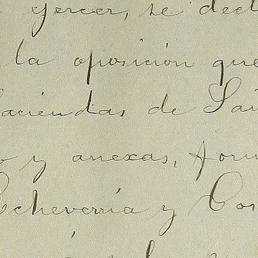 ejercer, se decl
la oposición que
aciendas de San
o y anexas, form
Echeverría y Cor